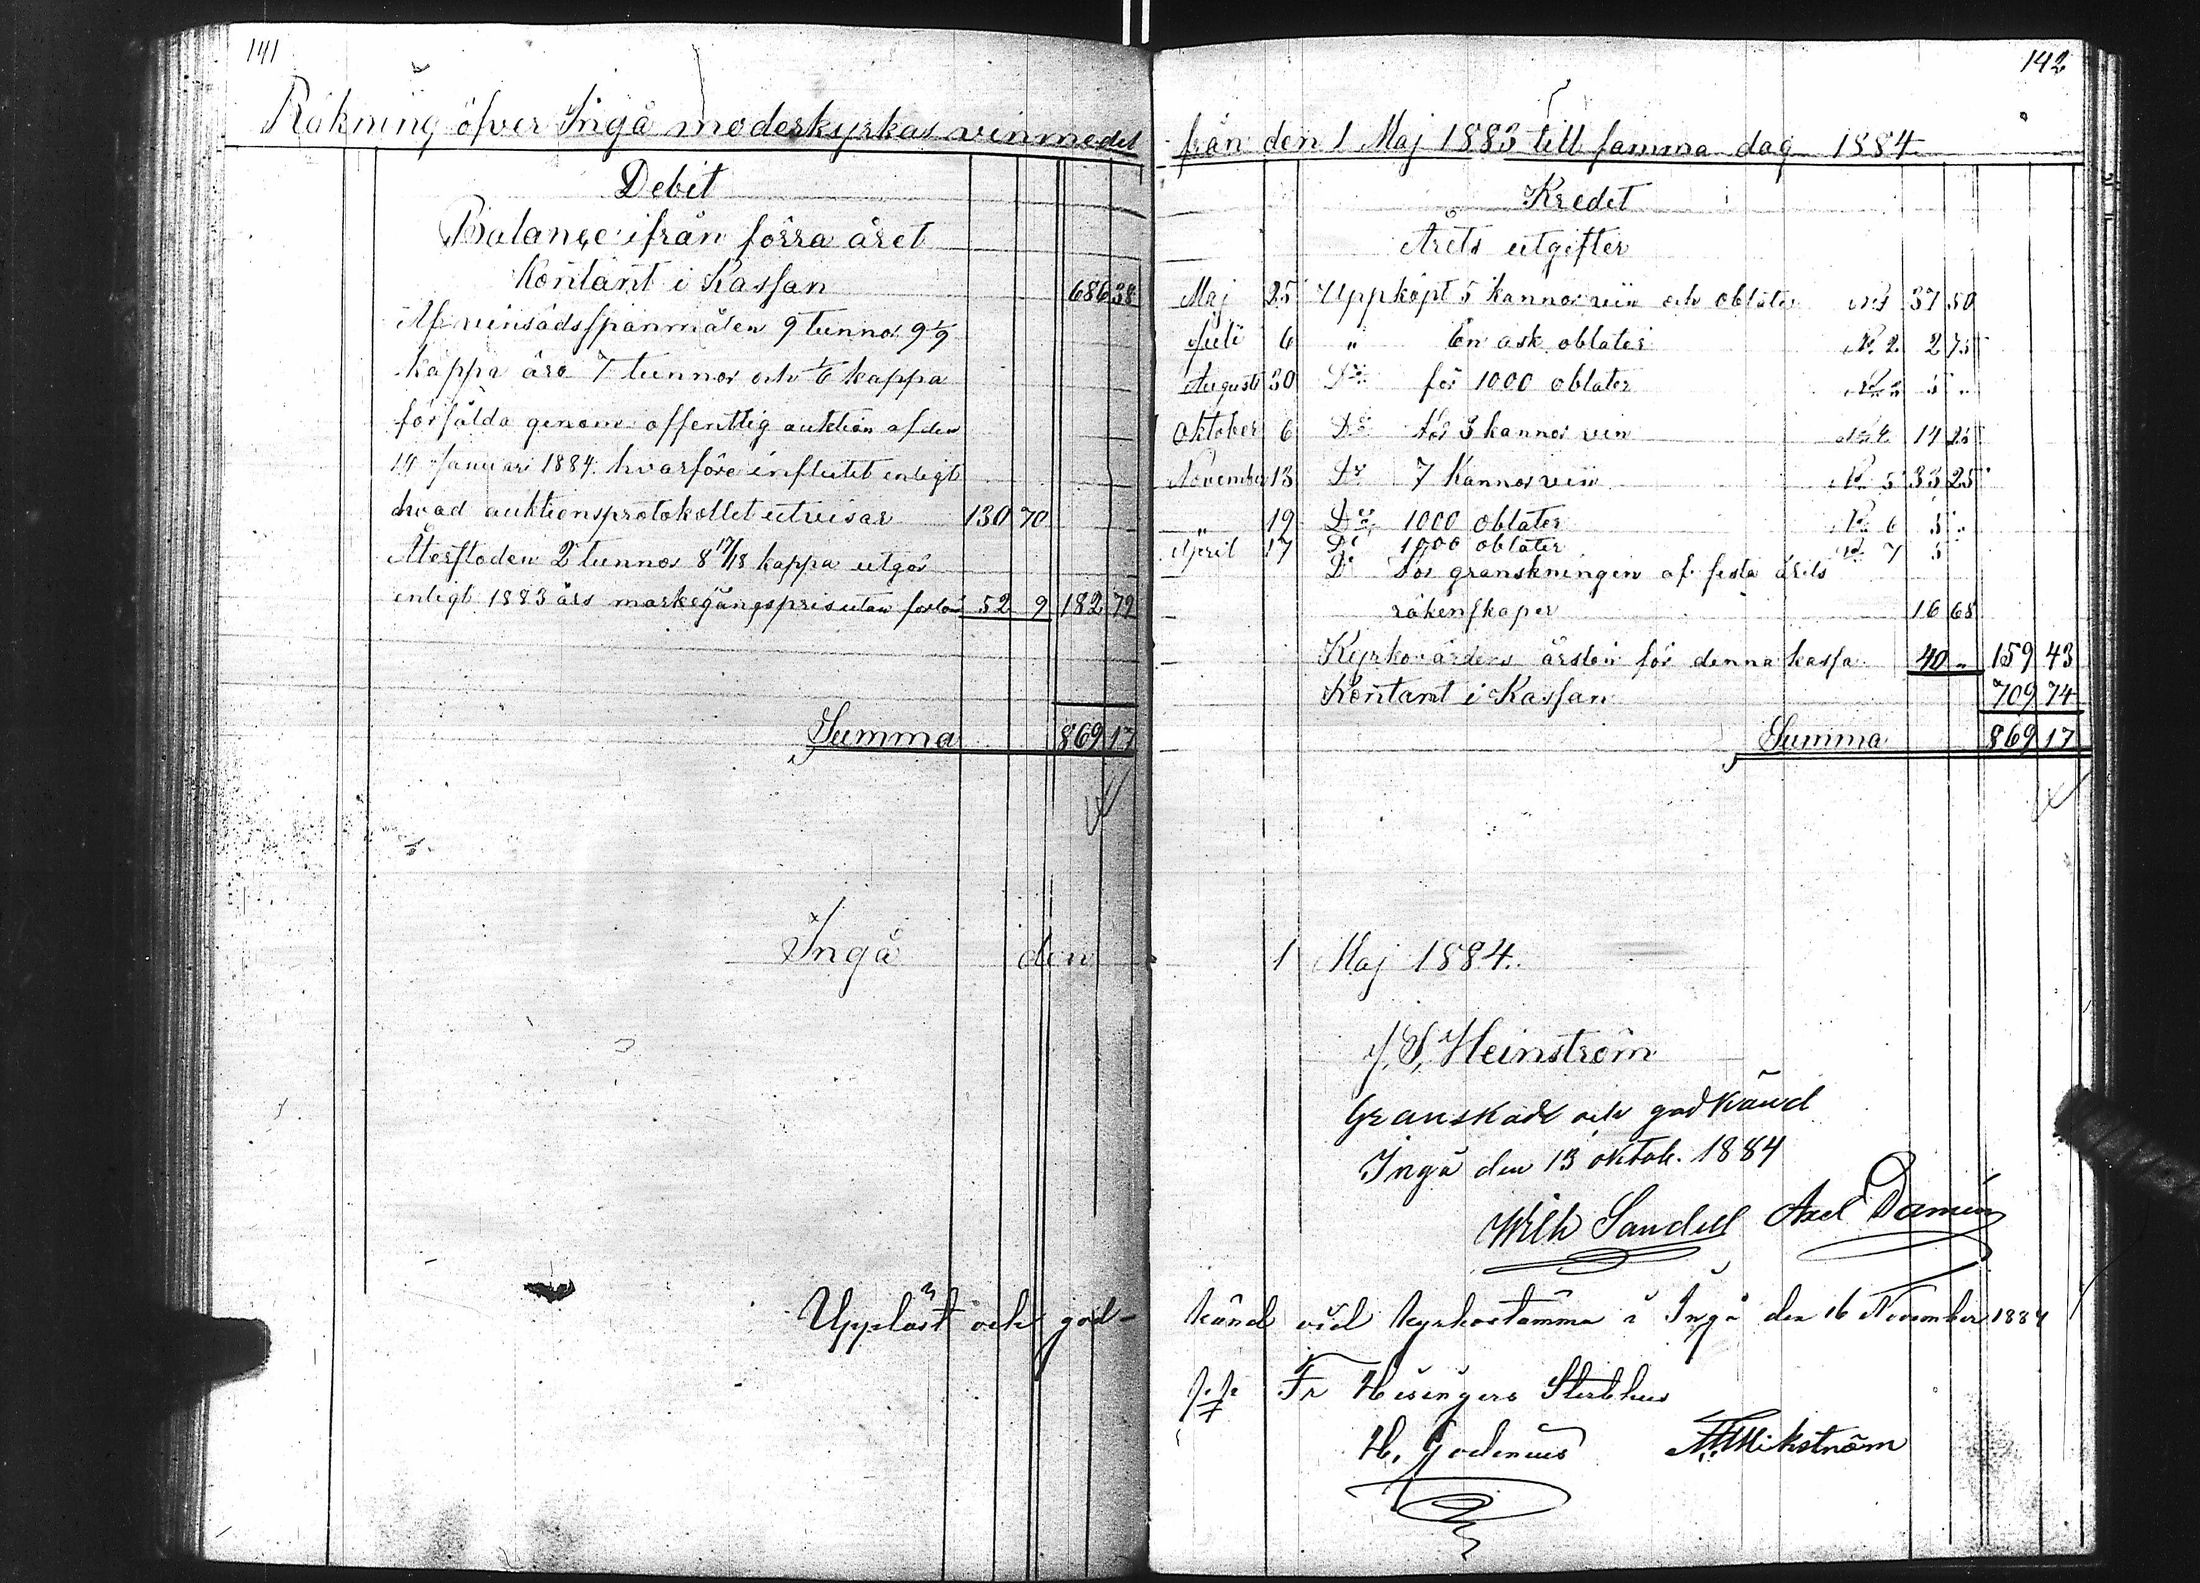 141
Räkning öfver Ingå moderkyrkas vinmedel
Debit
Balance ifrån förra året
Kontant i Kassan 686 38
Af vinsädsspanmålen 9 tunnor 9 1/9
kappa äro 7 tunnor och 1/6 kappa
försålda genom offentlig auktion af den
14 Januari 1884. hvarföre influtit enligt
hvad auktionsprotokollet utvisar 130 70
Återstoden 2 tunnor 8 17/18 kappa utgör
enligt 1883 års markegångspris utan 52 9 182 79
Summa 869 17
Ingå den
Uppläst och god-
142
från den 1 Maj 1883 till samma dag 1884
Kredit
Årets utgifter
Maj 25 Uppköpt 5 kannor vin och oblater No 1 37 50
Juli 6 " En ask oblater No 2 2 75
Augusti 30 Do för 1000 oblater No 3 5 "
Oktober 6 Do för 3 kannor vin No 4 14 25
November 13 Do 7 Kannor vin No 5 33 25
" 19 Do 1000 oblater No 6 5 "
April 17 Do 1000 oblater No 7 5
Do för granskningen af sista årets
räkenskaper 16 68
Kyrkovärdens årslön för denna kassa 40 " 159 43
Kontant i Kassan 709 74
Summa 869 17
1 Maj 1884.
J. S. Heinström
Granskad och godkänd
Ingå den 13 oktob. 1884
Wilh Sandell Axel
känd vid kyrkostämma i Ingå den 16 November 1884
p.p. Fr Hisingers Sterbhus